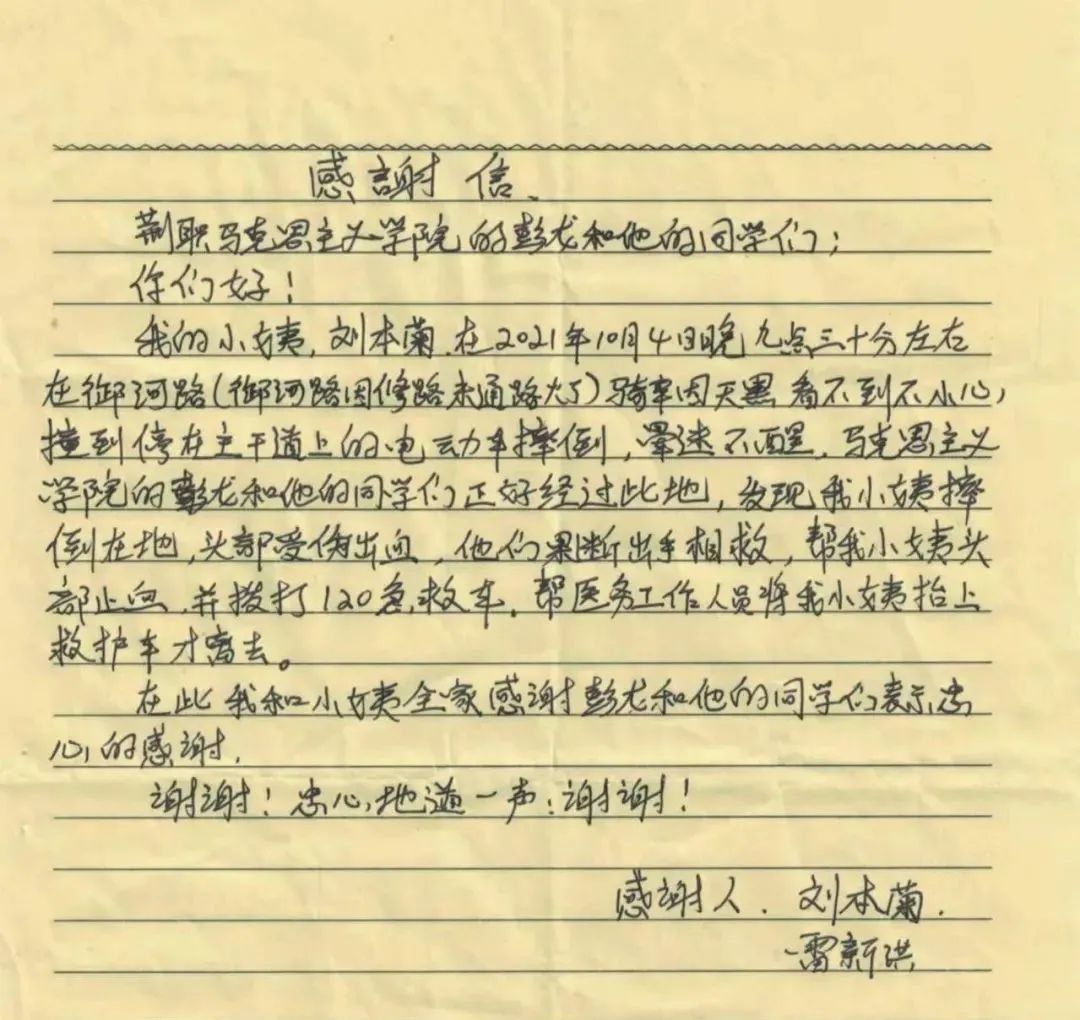 感謝信、
荆职马克思主义学院的彭龙和他的同学们；
你们好！
我的小姨，刘本菊，在2021年10月4日晚九点三十分左右
在御河路（御河路因修路未通路灯）骑车因天黑看不到不小心，
撞到停在主干道上的电动车摔倒，晕迷不醒，马克思主义
学院的彭龙和他的同学们正好经过此地，发现我小姨摔
倒在地，头部受伤出血，他们果断出手相救，帮我小姨头
部止血，并拨打120急救车，帮医务工作人员将我小姨抬上
救护车才离去。
在此我和小姨全家感谢彭龙和他的同学们表示忠
心的感谢，
谢谢！忠心地道一声：谢谢！
感谢人、刘本菊、
雷新洪